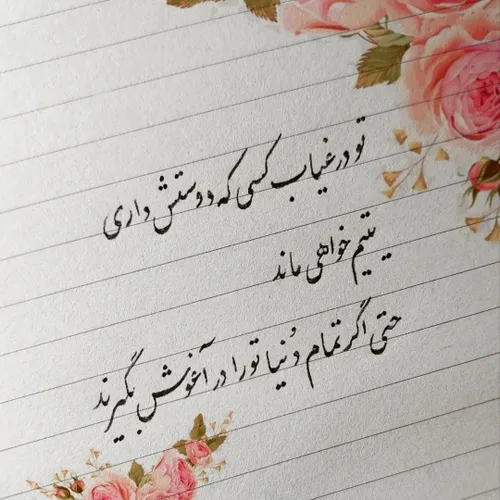 تو در غیاب کسی که دوستش داری
یتیم خواهی ماند
حتی اگر تمام دُنیا تو را در آغوش بگیرند